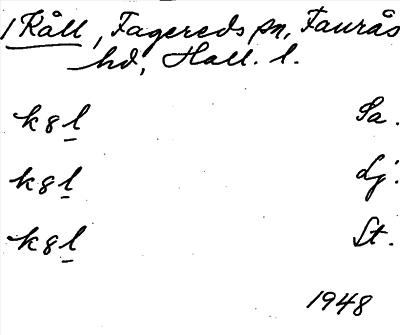 1 Kåll, Fagereds sn, Faurås
hd, Hall. l.
k8l Sa.
k8l Lj.
k8l St.
1948